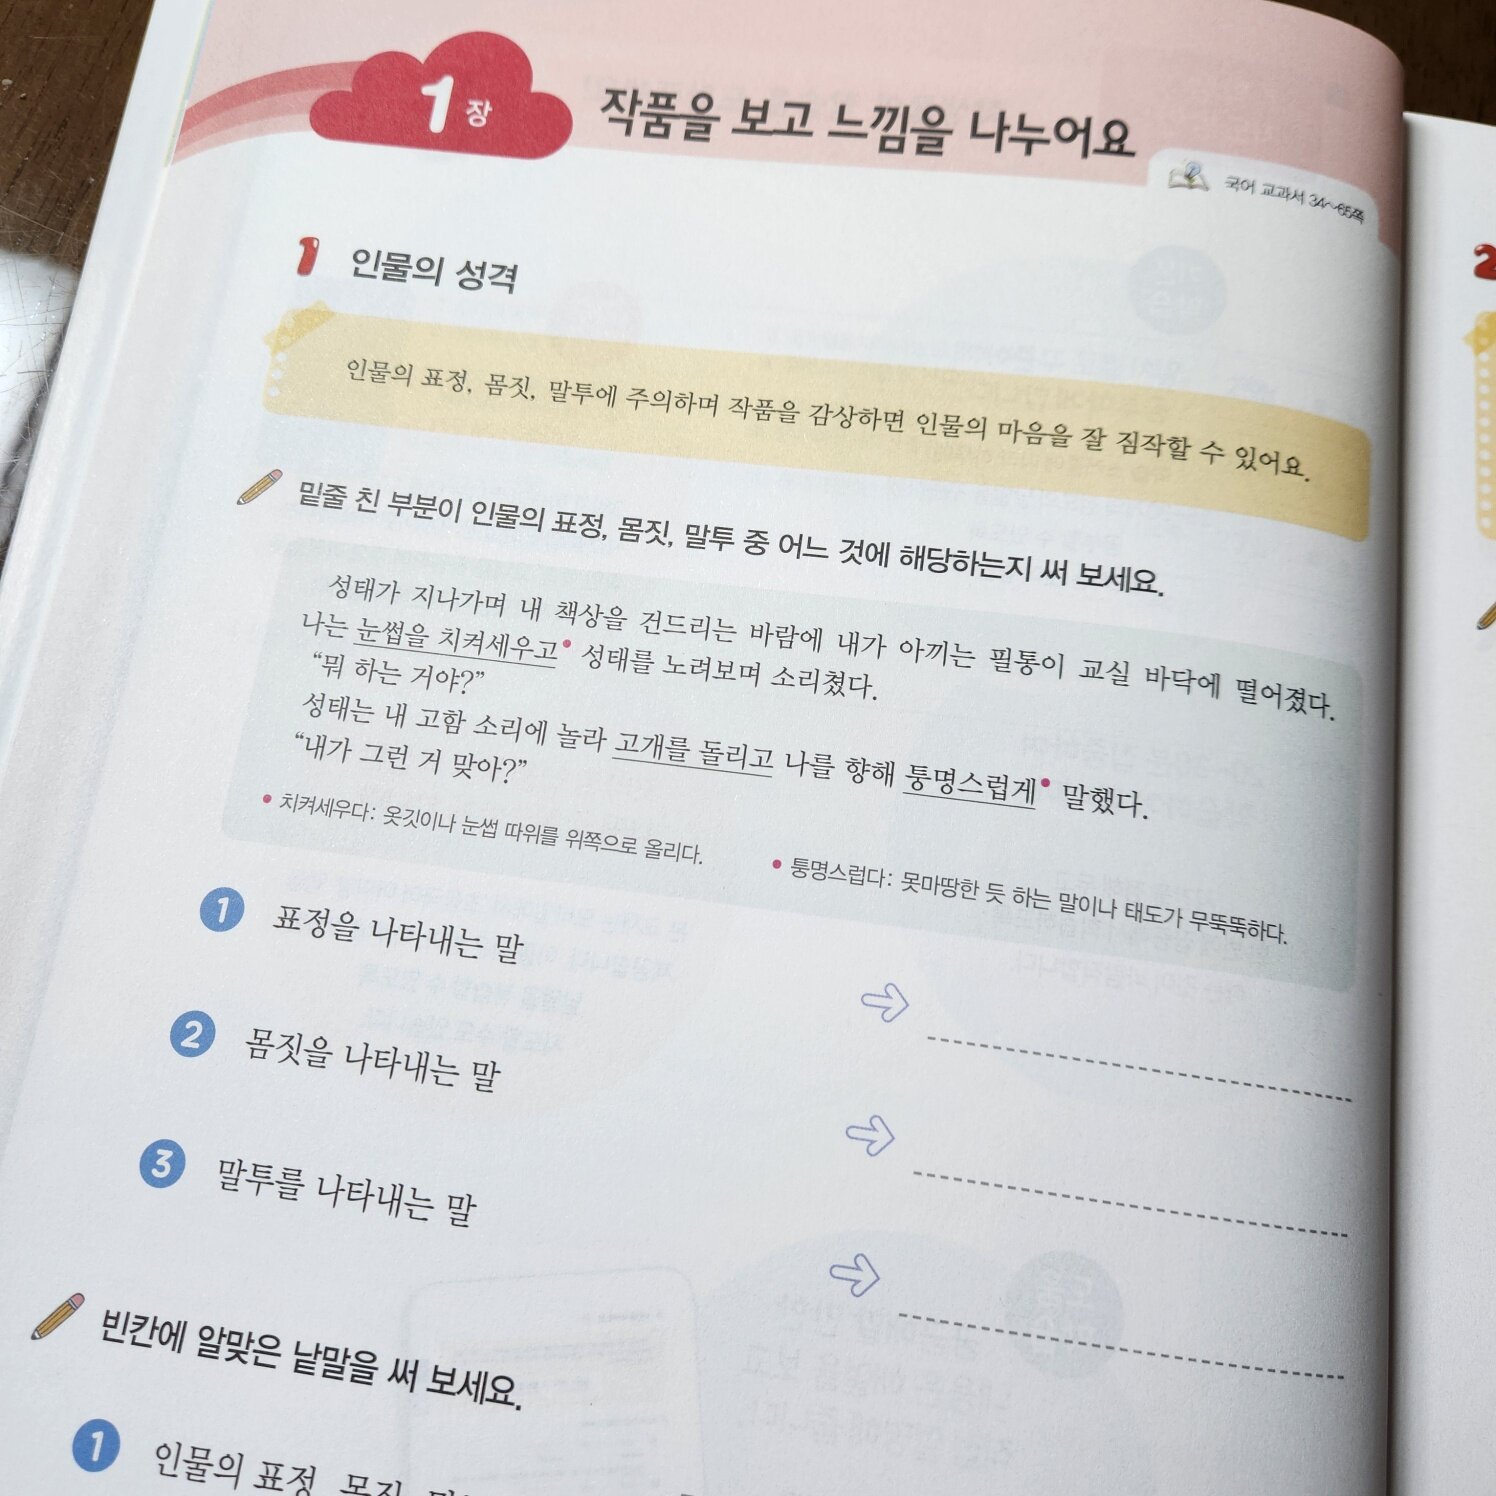 1장 작품을 보고 느낌을 나누어요
국어 교과서 34~65쪽
1 인물의 성격
인물의 표정, 몸짓, 말투에 주의하며 작품을 감상하면 인물의 마음을 잘 짐작할 수 있어요.
밑줄 친 부분이 인물의 표정, 몸짓, 말투 중 어느 것에 해당하는지 써 보세요.
성태가 지나가며 내 책상을 건드리는 바람에 내가 아끼는 필통이 교실 바닥에 떨어졌다.
나는 눈썹을 치켜세우고• 성태를 노려보며 소리쳤다.
“뭐 하는 거야?”
성태는 내 고함 소리에 놀라 고개를 돌리고 나를 향해 퉁명스럽게• 말했다.
“내가 그런 거 맞아?”
• 치켜세우다: 옷깃이나 눈썹 따위를 위쪽으로 올리다.
• 퉁명스럽다: 못마땅한 듯 하는 말이나 태도가 무뚝뚝하다.
1 표정을 나타내는 말
2 몸짓을 나타내는 말
3 말투를 나타내는 말
빈칸에 알맞은 낱말을 써 보세요.
1 인물의 표정, 몸짓,
2